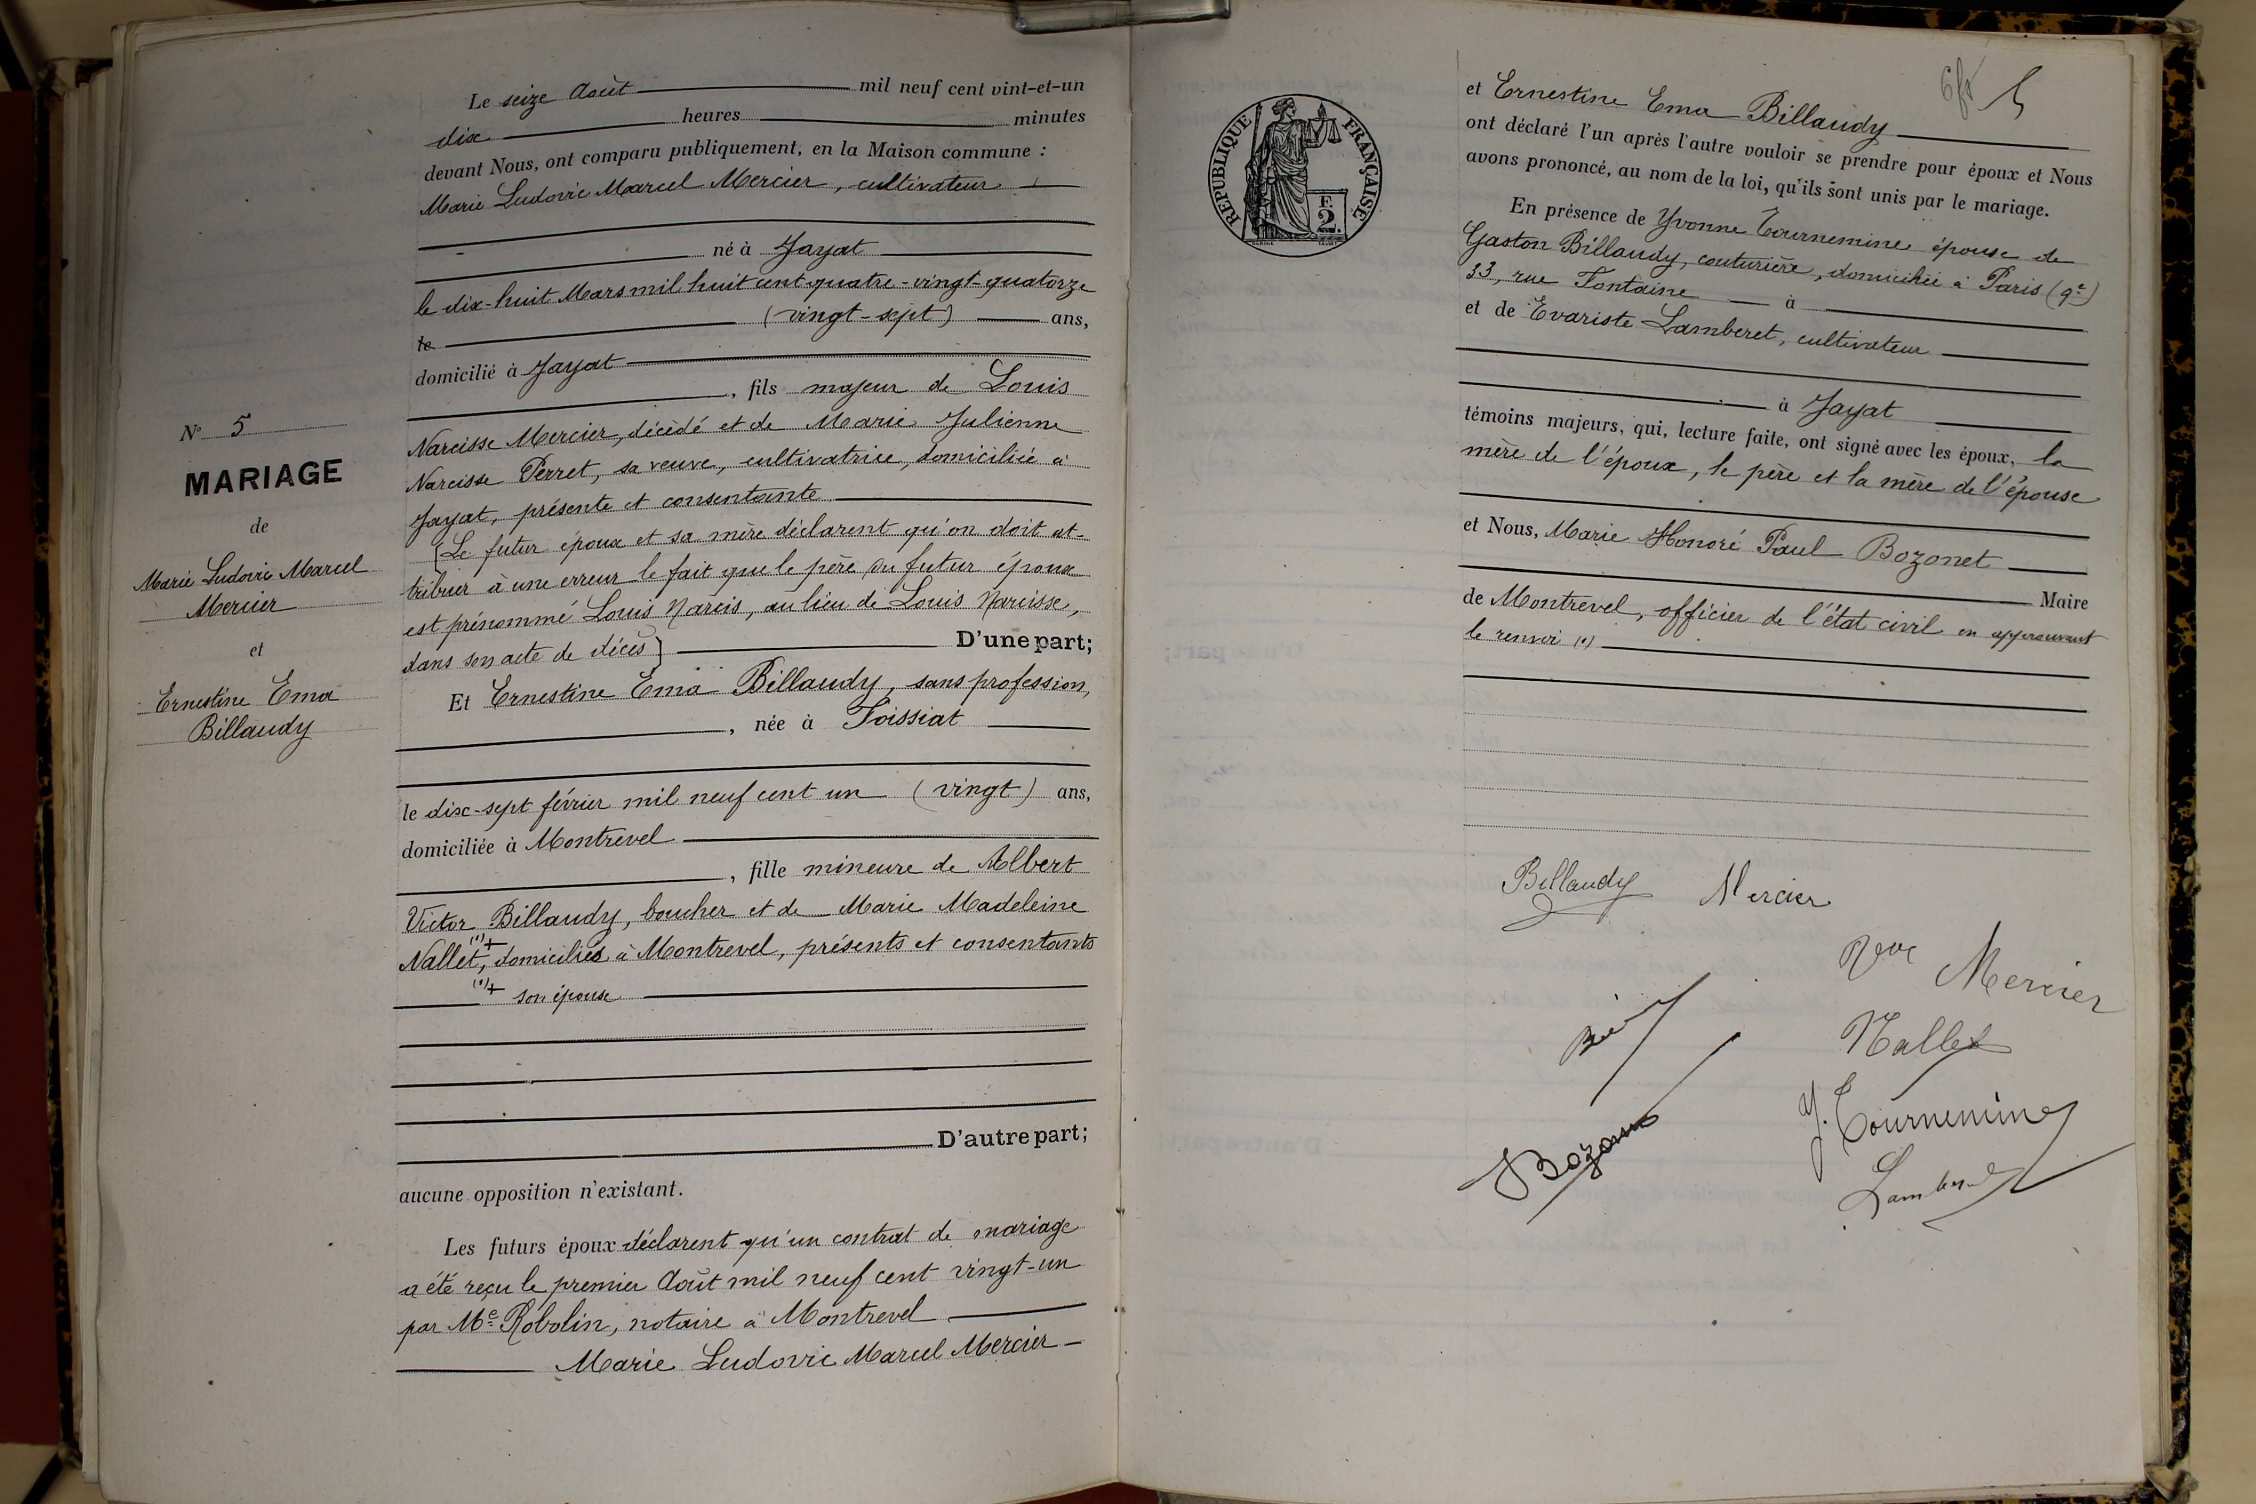 Le seize Août mil neuf cent vint-et-un
dix heures minutes
devant Nous, ont comparu publiquement, en la Maison commune :
Marie Ludovic Marcel Mercier, cultivateur
né à Jayat
le dix-huit Mars mil huit cent quatre-vingt-quatorze
le (vingt-sept) ans,
domicilié à Jayat
, fils majeur de Louis
Narcisse Mercier, décédé et de Marie Julienne
Narcisse Perret, sa veuve, cultivatrice, domiciliée à
Jayat, présente et consentante
[Le futur époux et sa mère déclarent qu'on doit at-
tribuer à une erreur le fait que le père du futur époux
est prénommé Louis Narcis, au lieu de Louis Narcisse,
dans son acte de décès] D'une part;
Et Ernestine Ema Billaudy, sans profession,
, née à Foissiat
le dix-sept février mil neuf cent un (vingt) ans,
domiciliée à Montrevel
, fille mineure de Albert
Victor Billaudy, boucher et de Marie Madeleine
Nallet, (1)+ domiciliés à Montrevel, présents et consentants
(1)+ son épouse
D'autre part;
aucune opposition n'existant.
Les futurs époux déclarent qu'un contrat de mariage
a été reçu le premier Août mil neuf cent vingt-un
par Me Robolin, notaire à Montrevel
Marie Ludovic Marcel Mercier
No 5
MARIAGE
de
Marie Ludovic Marcel
Mercier
et
Ernestine Ema
Billaudy
RÉPUBLIQUE FRANÇAISE
F.
2.
et Ernestine Ema Billaudy
ont déclaré l'un après l'autre vouloir se prendre pour époux et Nous
avons prononcé, au nom de la loi, qu'ils sont unis par le mariage.
En présence de Yvonne Tournemine épouse de
Gaston Billaudy, couturière, domiciliée à Paris (9e)
33, rue Fontaine à
et de Evariste Lamberet, cultivateur
à Jayat
témoins majeurs, qui, lecture faite, ont signé avec les époux, la
mère de l'époux, le père et la mère de l'épouse
et Nous, Marie Honoré Paul Bozonet
Maire
de Montrevel, officier de l'état civil en approuvant
le renvoi (1)
Billaudy Mercier
Vve Mercier
Nallet
Y. Tournemine
Bozonet
Lamberet